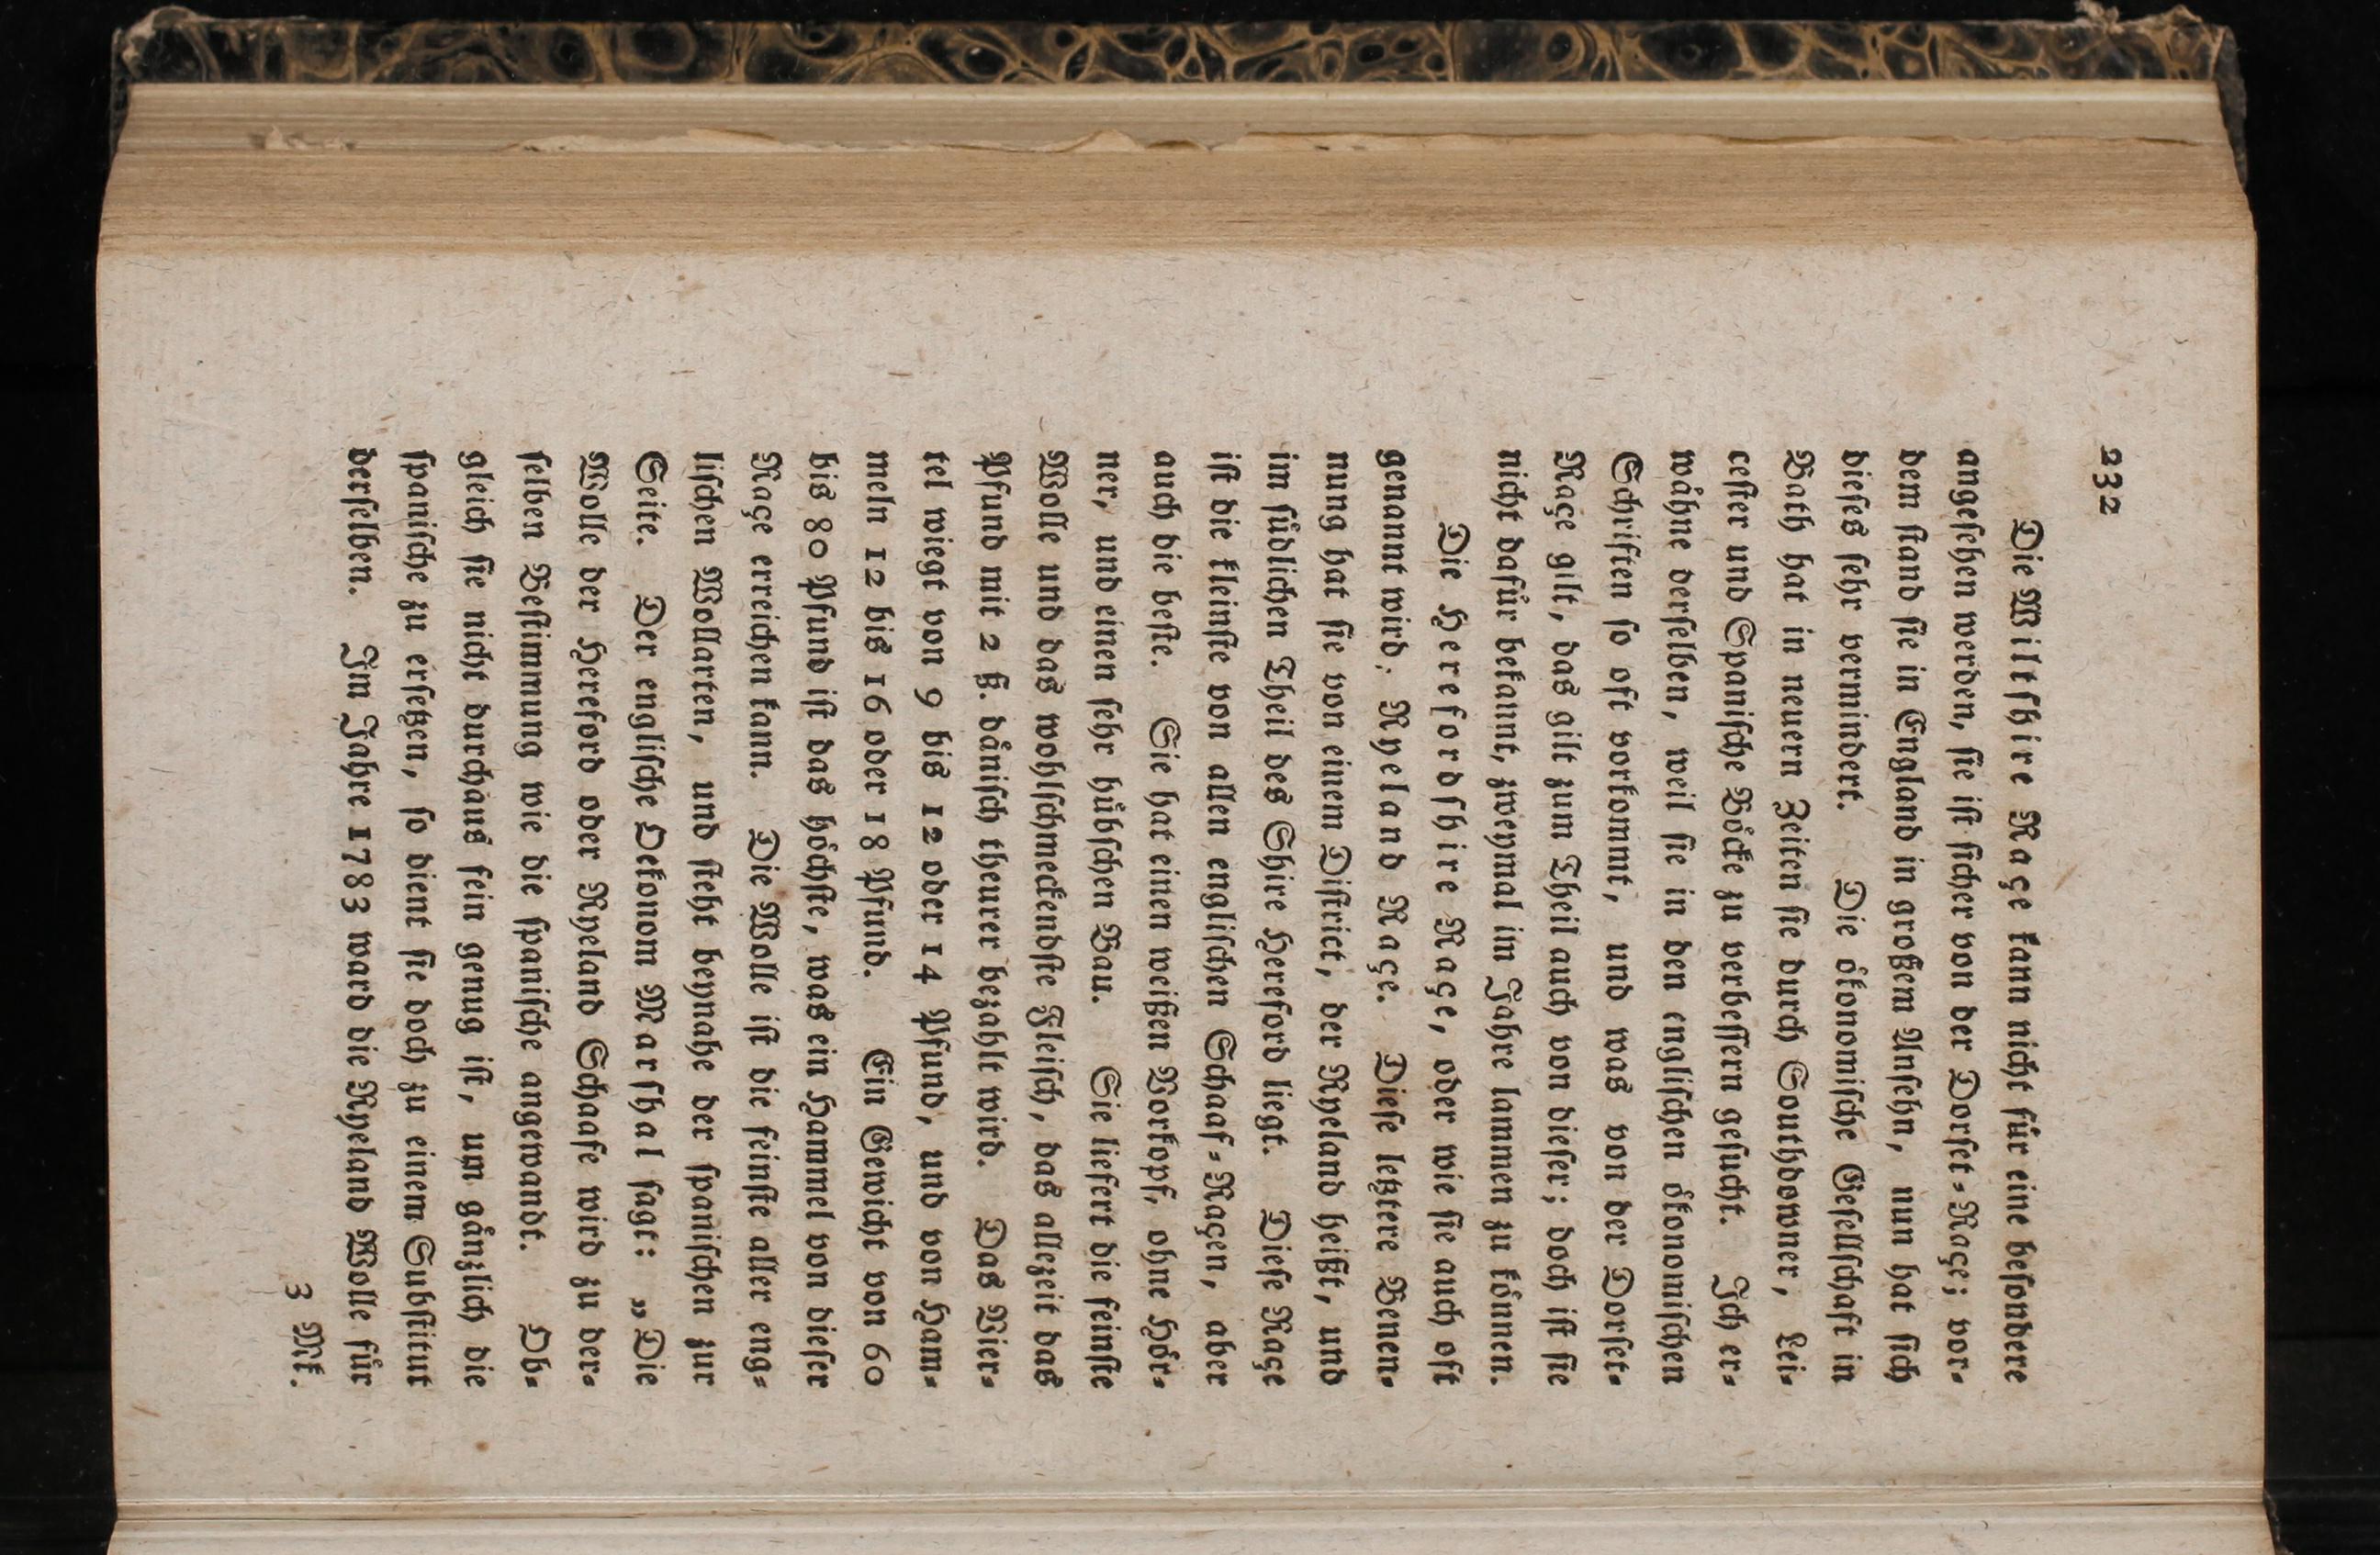 232
Die Wiltſhire Raçe kann nicht fuͤr eine beſondere
angeſehen werden, ſie iſt ſicher von der Dorſet-Raçe; vor-
dem ſtand ſie in England in großem Anſehn, nun hat ſich
dieſes ſehr vermindert. Die oͤkonomiſche Geſellſchaft in
Bath hat in neuern Zeiten ſie durch Southdowner, Lei-
ceſter und Spaniſche Boͤcke zu verbeſſern geſucht. Ich er-
waͤhne derſelben, weil ſie in den engliſchen oͤkonomiſchen
Schriften ſo oft vorkommt, und was von der Dorſet-
Raçe gilt, das gilt zum Theil auch von dieſer; doch iſt ſie
nicht dafuͤr bekannt, zweymal im Jahre lammen zu koͤnnen.
Die Herefordſhire Raçe, oder wie ſie auch oft
genannt wird: Ryeland Raçe. Dieſe letztere Benen-
nung hat ſie von einem Diſtrict, der Ryeland heißt, und
im ſuͤdlichen Theil des Shire Hereford liegt. Dieſe Raçe
iſt die kleinſte von allen engliſchen Schaaf-Raçen, aber
auch die beſte. Sie hat einen weißen Vorkopf, ohne Hoͤr-
ner, und einen ſehr huͤbſchen Bau. Sie liefert die feinſte
Wolle und das wohlſchmeckendſte Fleiſch, das allezeit das
Pfund mit 2 ß. daͤniſch theurer bezahlt wird. Das Vier-
tel wiegt von 9 bis 12 oder 14 Pfund, und von Ham-
meln 12 bis 16 oder 18 Pfund. Ein Gewicht von 60
bis 80 Pfund iſt das hoͤchſte, was ein Hammel von dieſer
Raçe erreichen kann. Die Wolle iſt die feinſte aller eng-
liſchen Wollarten, und ſteht beynahe der ſpaniſchen zur
Seite. Der engliſche Oekonom Marſhal ſagt: „Die
Wolle der Hereford oder Ryeland Schaafe wird zu der-
ſelben Beſtimmung wie die ſpaniſche angewandt. Ob-
gleich ſie nicht durchaus fein genug iſt, um gaͤnzlich die
ſpaniſche zu erſetzen, ſo dient ſie doch zu einem Subſtitut
derſelben. Im Jahre 1783 ward die Ryeland Wolle fuͤr
3 Mk.